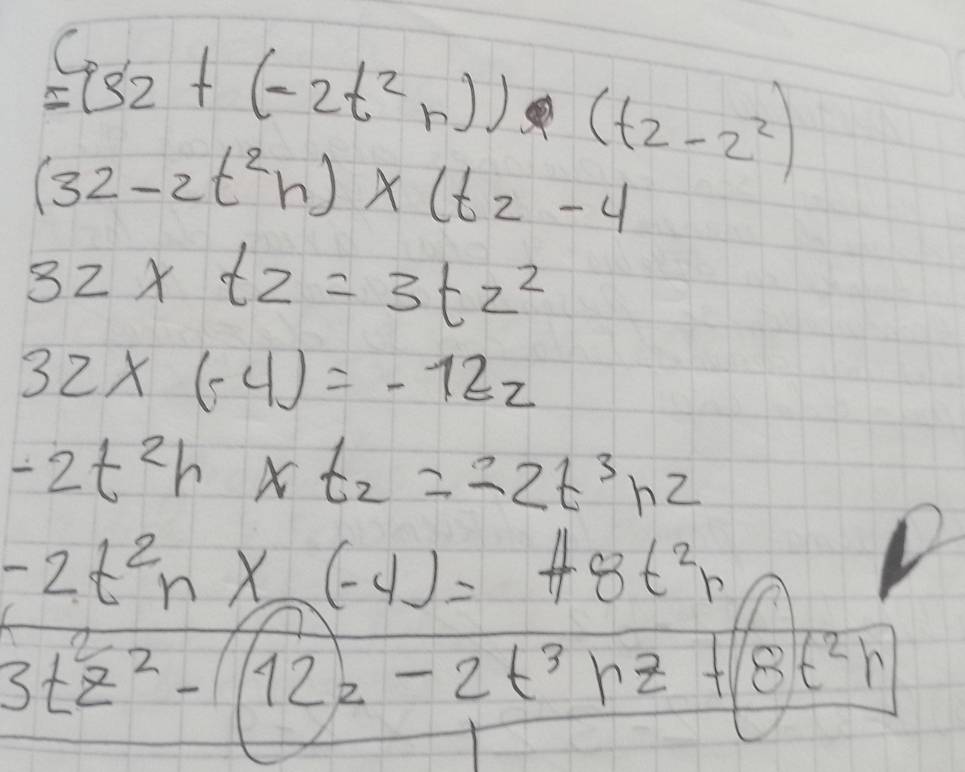 =(3z + (-2t²n)) • (tz - 2²)
(3z - 2t²n) x (tz - 4
3z x tz = 3tz²
3z x (-4) = - 12z
-2t²n x tz = -2t³nz
-2t²n x (-4) = +8t²n
3tz² - 12z - 2t³nz + 8t²n